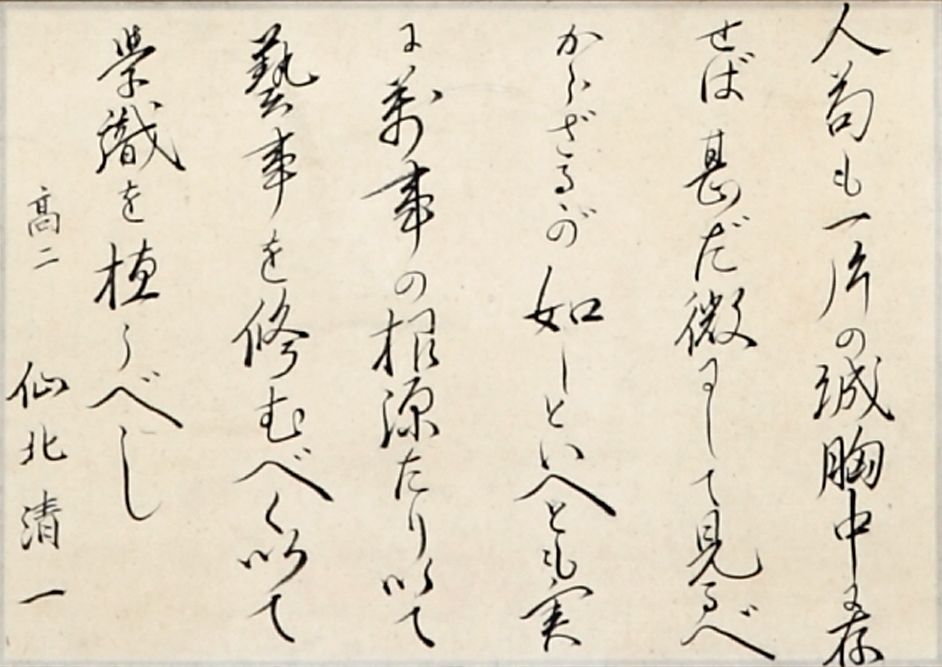 人苟も一片の誠胸中に存
せば甚だ微にして見るべ
からざるが如しといへども実
に萬事の根源たり以て
藝事を修むべく以て
学識を植うべし
高二 仙北清一